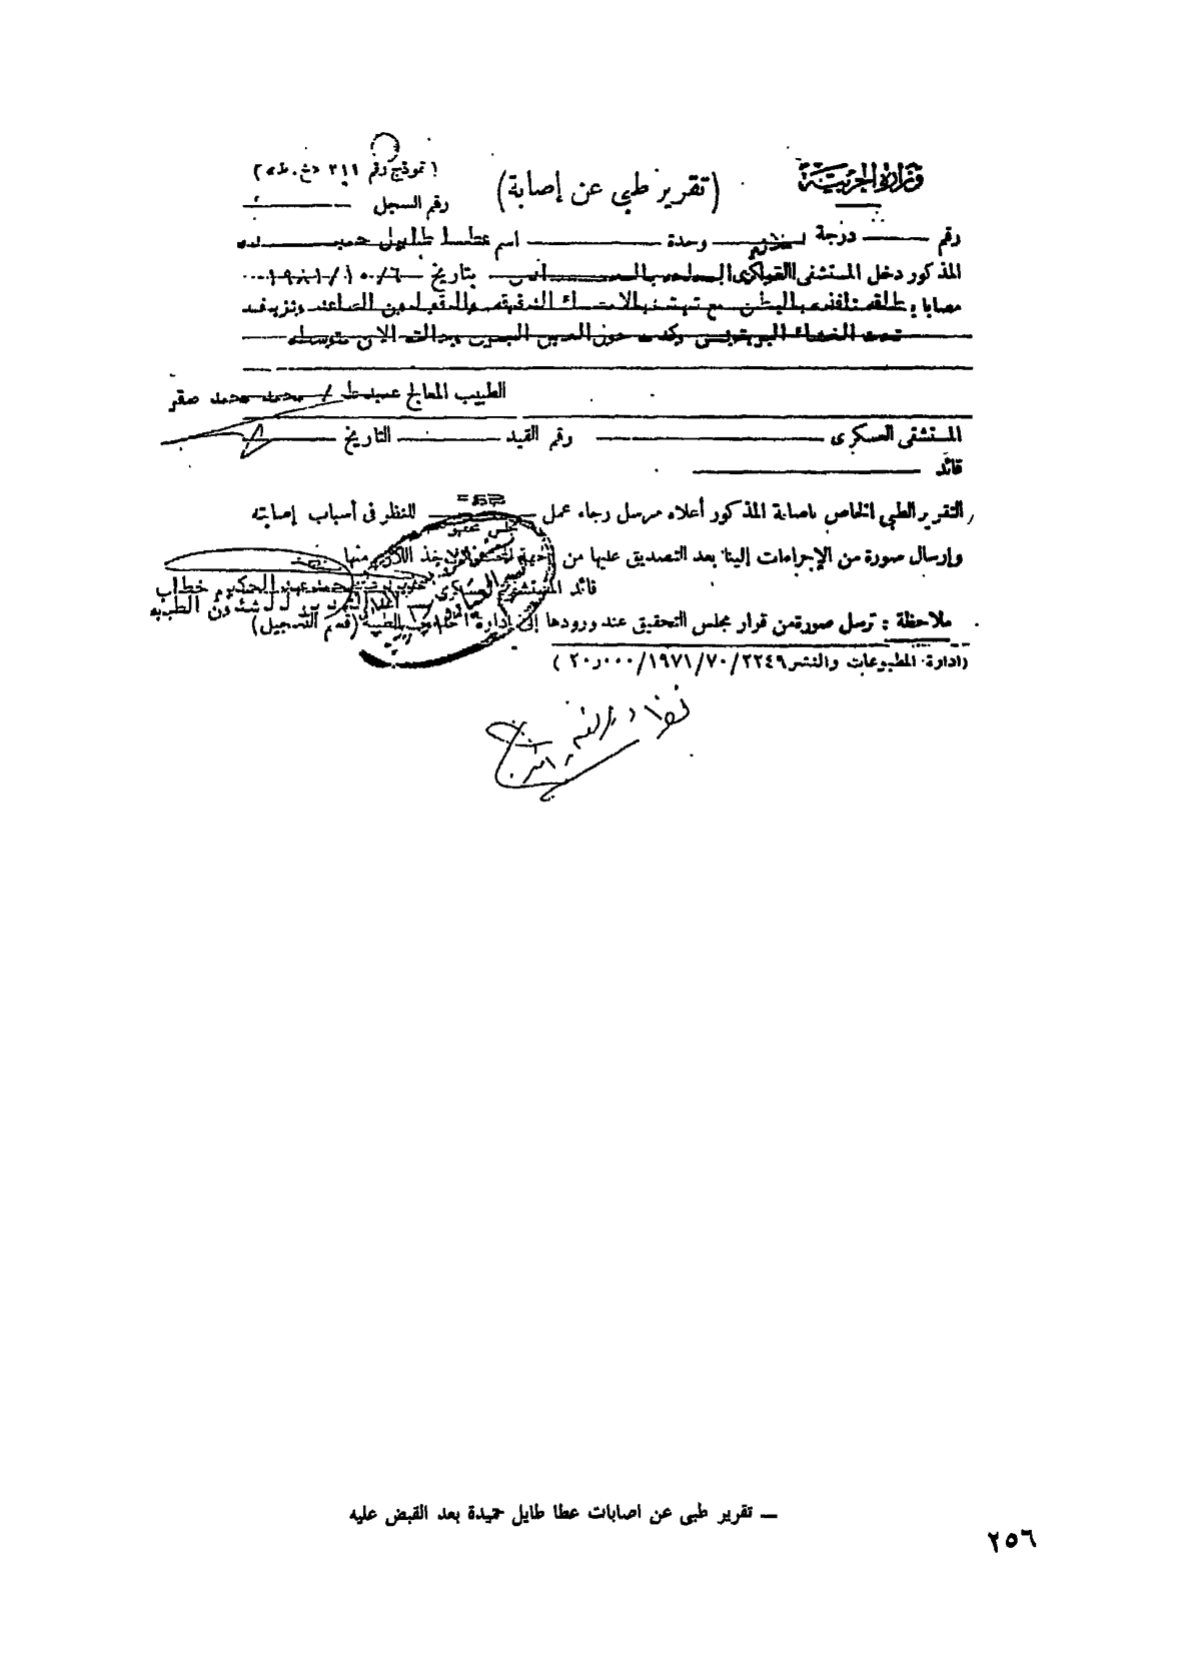 وزارة الحربية
(تقرير طبي عن إصابة)
( نموذج رقم ٣١١ «غ.ط»)
رقم السجل
رقم درجة ملازم وحدة اسم عطا طايل حميده
المذكور دخل المستشفى العسكرى بتاريخ ٦/١٠/١٩٨١
مصابا بـ طلقه نافذه بالبطن مع تهتك بالامعاء الدقيقه والقولون الصاعد ونزيف
تحت الغشاء البريتونى وكدمه حول العين اليمين وحالته الان متوسطه
الطبيب المعالج عميد ط / محمد محمد صقر
المستشفى العسكرى رقم القيد التاريخ
قائد
التقرير الطبي الخاص باصابة المذكور أعلاه مرسل رجاء عمل مجلس تحقيق للنظر فى أسباب إصابته
وإرسال صورة من الإجراءات إلينا بعد التصديق عليها من الجهة المختصة لأخذ اللازم منها
قائد المستشفى العسكرى عبد الحكيم خطاب
للشئون الطبيه
ملاحظة : ترسل صورة من قرار مجلس التحقيق عند ورودها إلى إدارة الخدمات الطبية (قسم التسجيل)
(ادارة المطبوعات والنشر ٢٢٤٩/٧٠/١٩٧١/٢٠٫٠٠٠ )
— تقرير طبى عن اصابات عطا طايل حميدة بعد القبض عليه
٢٥٦